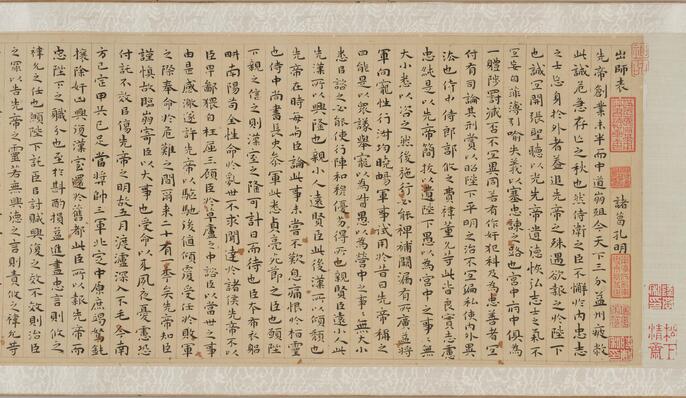 出師表 諸葛孔明
先帝創業未半而中道崩殂今天下三分益州疲敝
此誠危急存亡之秋也然侍衛之臣不懈於內忠志
之士忘身於外者蓋追先帝之殊遇欲報之於陛下
也誠宜開張聖聽以光先帝遺德恢弘志士之氣不
宜妄自菲薄引喻失義以塞忠諫之路也宮中府中俱為
一體陟罰臧否不宜異同若有作奸犯科及為忠善者宜
付有司論其刑賞以昭陛下平明之治不宜偏私使內外異
法也侍中侍郎郭攸之費禕董允等此皆良實志慮
忠純是以先帝簡拔以遺陛下愚以為宮中之事事無
大小悉以咨之然後施行必能裨補闕漏有所廣益將
軍向寵性行淑均曉暢軍事試用於昔日先帝稱之
曰能是以眾議舉寵以為督愚以為營中之事事無大小
悉以咨之必能使行陣和穆優劣得所也親賢臣遠小人此
先漢所以興隆也親小人遠賢臣此後漢所以傾頹也
先帝在時每與臣論此事未嘗不歎息痛恨於桓靈
也侍中尚書長史參軍此悉貞亮死節之臣也願陛
下親之信之則漢室之隆可計日而待也臣本布衣躬
耕南陽苟全性命於亂世不求聞達於諸侯先帝不以
臣卑鄙猥自枉屈三顧臣於草廬之中諮臣以當世之事
由是感激遂許先帝以驅馳後值傾覆受任於敗軍
之際奉命於危難之間爾來二十有一年矣先帝知臣
謹慎故臨崩寄臣以大事也受命以來夙夜憂慮恐
付託不效以傷先帝之明故五月渡瀘深入不毛今南
方已定甲兵已足當獎帥三軍北定中原庶竭駑鈍
攘除奸凶興復漢室還於舊都此臣所以報先帝而
忠陛下之職分也至於斟酌損益進盡忠言則攸之
禕允之任也願陛下託臣以討賊興復之效不效則治臣
之罪以告先帝之靈若無興德之言則責攸之禕允等